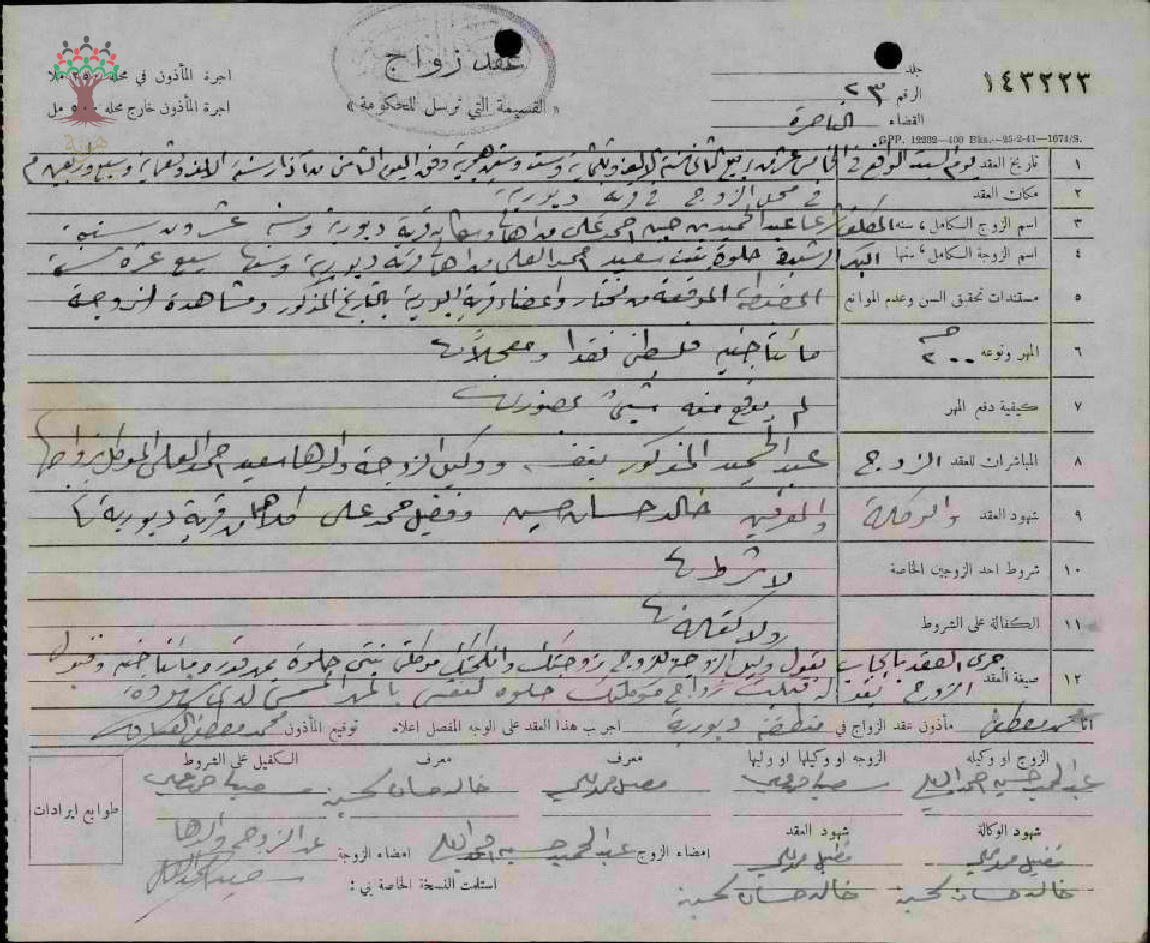 عقد زواج
« القسيمة التي ترسل للحكومة »
اجرة المأذون في محله
اجرة المأذون خارج محله ٥٠٠ مل
هوية
١٤٣٢٢٣
جلد
الرقم ٢٣
القضاء الناصرة
GPP. 12232—400 Bks.—25-2-41—1674/S.
١ تاريخ العقد يوم السبت الواقع في الخامس عشر من ربيع الثاني سنة الف وثلثماية وستة وستين هجرية وفق اليوم الثامن من آذار سنة الف وتسعماية وسبع واربعين م
٢ مكان العقد في محل الزوج في قرية دبورية
٣ اسم الزوج الكامل، سنه المكلف شرعا عبد الحميد بن حسين احمد علي من اهالي وسكان قرية دبورية وسنه عشرون سنة
٤ اسم الزوجة الكامل، سنها البكر الرشيدة حلوة بنت سعيد احمد العلي من اهالي قرية دبورية وسنها سبع عشرة سنة
٥ مستندات تحقيق السن وعدم الموانع المضبطة الموقعة من مختار واعضاء قرية دبورية بالتاريخ المذكور ومشاهدة الزوجة
٦ المهر ونوعه ٢٠٠ مائتا جنيه فلسطيني نقدا ومعجلا
٧ كيفية دفع المهر لم يدفع منه شيئ بحضوري
٨ المباشران للعقد الزوج عبد الحميد المذكور بنفسه ووكيل الزوجة والدها سعيد احمد العلي الموكل بزواجها
٩ شهود العقد والوكالة والمعرفين خالد حسان حسين وفضيل محمد علي كلاهما من قرية دبورية
١٠ شروط احد الزوجين الخاصة لا شرط
١١ الكفالة على الشروط ولا كفالة
١٢ صيغة العقد جرى العقد بايجاب بقول وكيل الزوجة للزوج زوجتك وانكحتك موكلتي بنتي حلوة بمهر قدره مائتا جنيه وقبول
الزوج بقوله قبلت زواج موكلتك حلوه لنفسي بالمهر المسمى لدى شهوده
انا محمد مصطفى مأذون عقد الزواج في منطقة دبورية اجريت هذا العقد على الوجه المفصل اعلاه توقيع المأذون محمد مصطفى
الزوج او وكيله الزوجه او وكيلها او وليها معرف معرف الكفيل على الشروط
عبد الحميد حسين احمد العلي سعيد احمد علي فضيل محمد علي خالد حسان حسين سعيد احمد علي
طوابع ايرادات
شهود الوكالة شهود العقد
فضيل محمد علي فضيل محمد علي امضاء الزوج عبد الحميد حسين احمد العلي امضاء الزوجة عن الزوجة والدها
خالد حسان حسين خالد حسان حسين استلمت النسخة الخاصة بي : سعيد احمد العلي